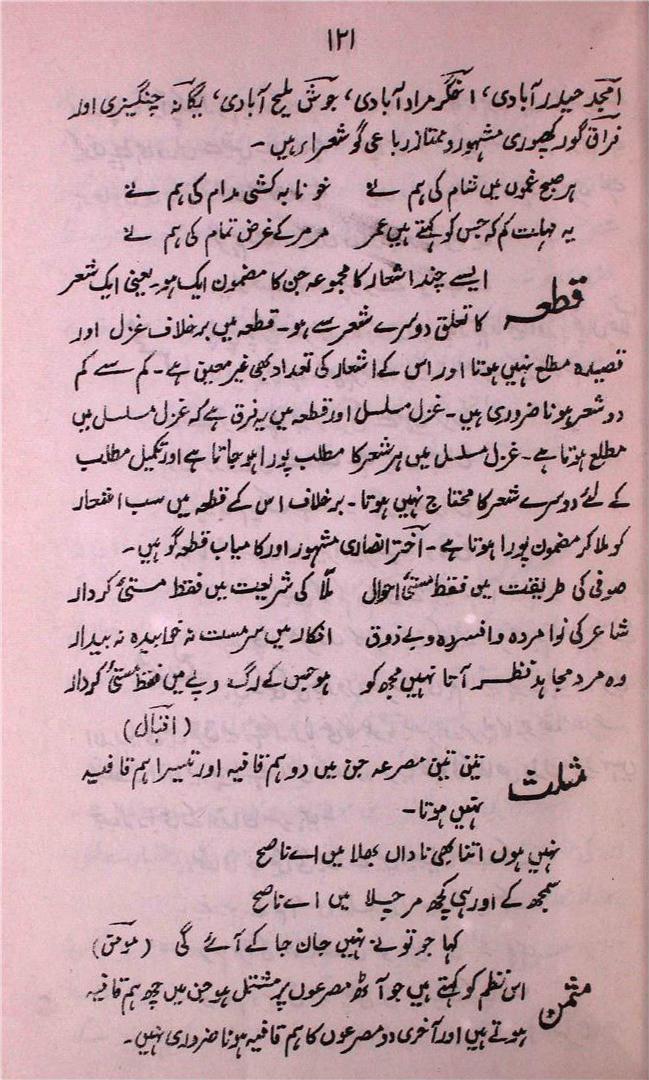 ۱۲۱
امجد حیدرآبادی، اخگر مرادآبادی، جوش ملیح آبادی، یگانہ چنگیزی اور
فراق گورکھپوری مشہور و ممتاز رباعی گو شعراء ہیں۔
ہر صبح غموں میں شام کی ہم نے خونابہ کشی مدام کی ہم نے
یہ مہلت کم کہ جس کو کہتے ہیں عمر مر مر کے غرض تمام کی ہم نے
قطعہ ایسے چند اشعار کا مجموعہ جن کا مضمون ایک ہو۔ یعنی ایک شعر
کا تعلق دوسرے شعر سے ہو۔ قطعہ میں برخلاف غزل اور
قصیدہ مطلع نہیں ہوتا اور اس کے اشعار کی تعداد بھی غیر معین ہے۔ کم سے کم
دو شعر ہونا ضروری ہیں۔ غزل مسلسل اور قطعہ میں یہ فرق ہے کہ غزل مسلسل میں
مطلع ہوتا ہے۔ غزل مسلسل میں ہر شعر کا مطلب پورا ہو جاتا ہے اور تکمیل مطلب
کے لئے دوسرے شعر کا محتاج نہیں ہوتا۔ برخلاف اس کے قطعہ میں سب اشعار
کو ملا کر مضمون پورا ہوتا ہے۔ اختر انصاری مشہور اور کامیاب قطعہ گو ہیں۔
صوفی کی طریقت میں فقط مستیٔ احوال ملّا کی شریعت میں فقط مستیٔ کردار
شاعر کی نوا مردہ و افسردہ و بے ذوق افکار میں سرمست نہ خوابیدہ نہ بیدار
وہ مرد مجاہد نظر آتا نہیں مجھ کو ہو جس کے رگ و پے میں فقط مستیٔ کردار
(اقبال)
مثلث تین تین مصرعہ جن میں دو ہم قافیہ اور تیسرا ہم قافیہ
نہیں ہوتا۔
نہیں ہوں اتنا بھی ناداں بھلا میں اے ناصح
سمجھ کے اور ہی کچھ مر چلا میں اے ناصح
کہا جو تو نے نہیں جان جا کے آئے گی (مومن)
مثمن اس نظم کو کہتے ہیں جو آٹھ مصرعوں پر مشتمل ہو جن میں چھ ہم قافیہ
ہوتے ہیں اور آخری دو مصرعوں کا ہم قافیہ ہونا ضروری نہیں۔